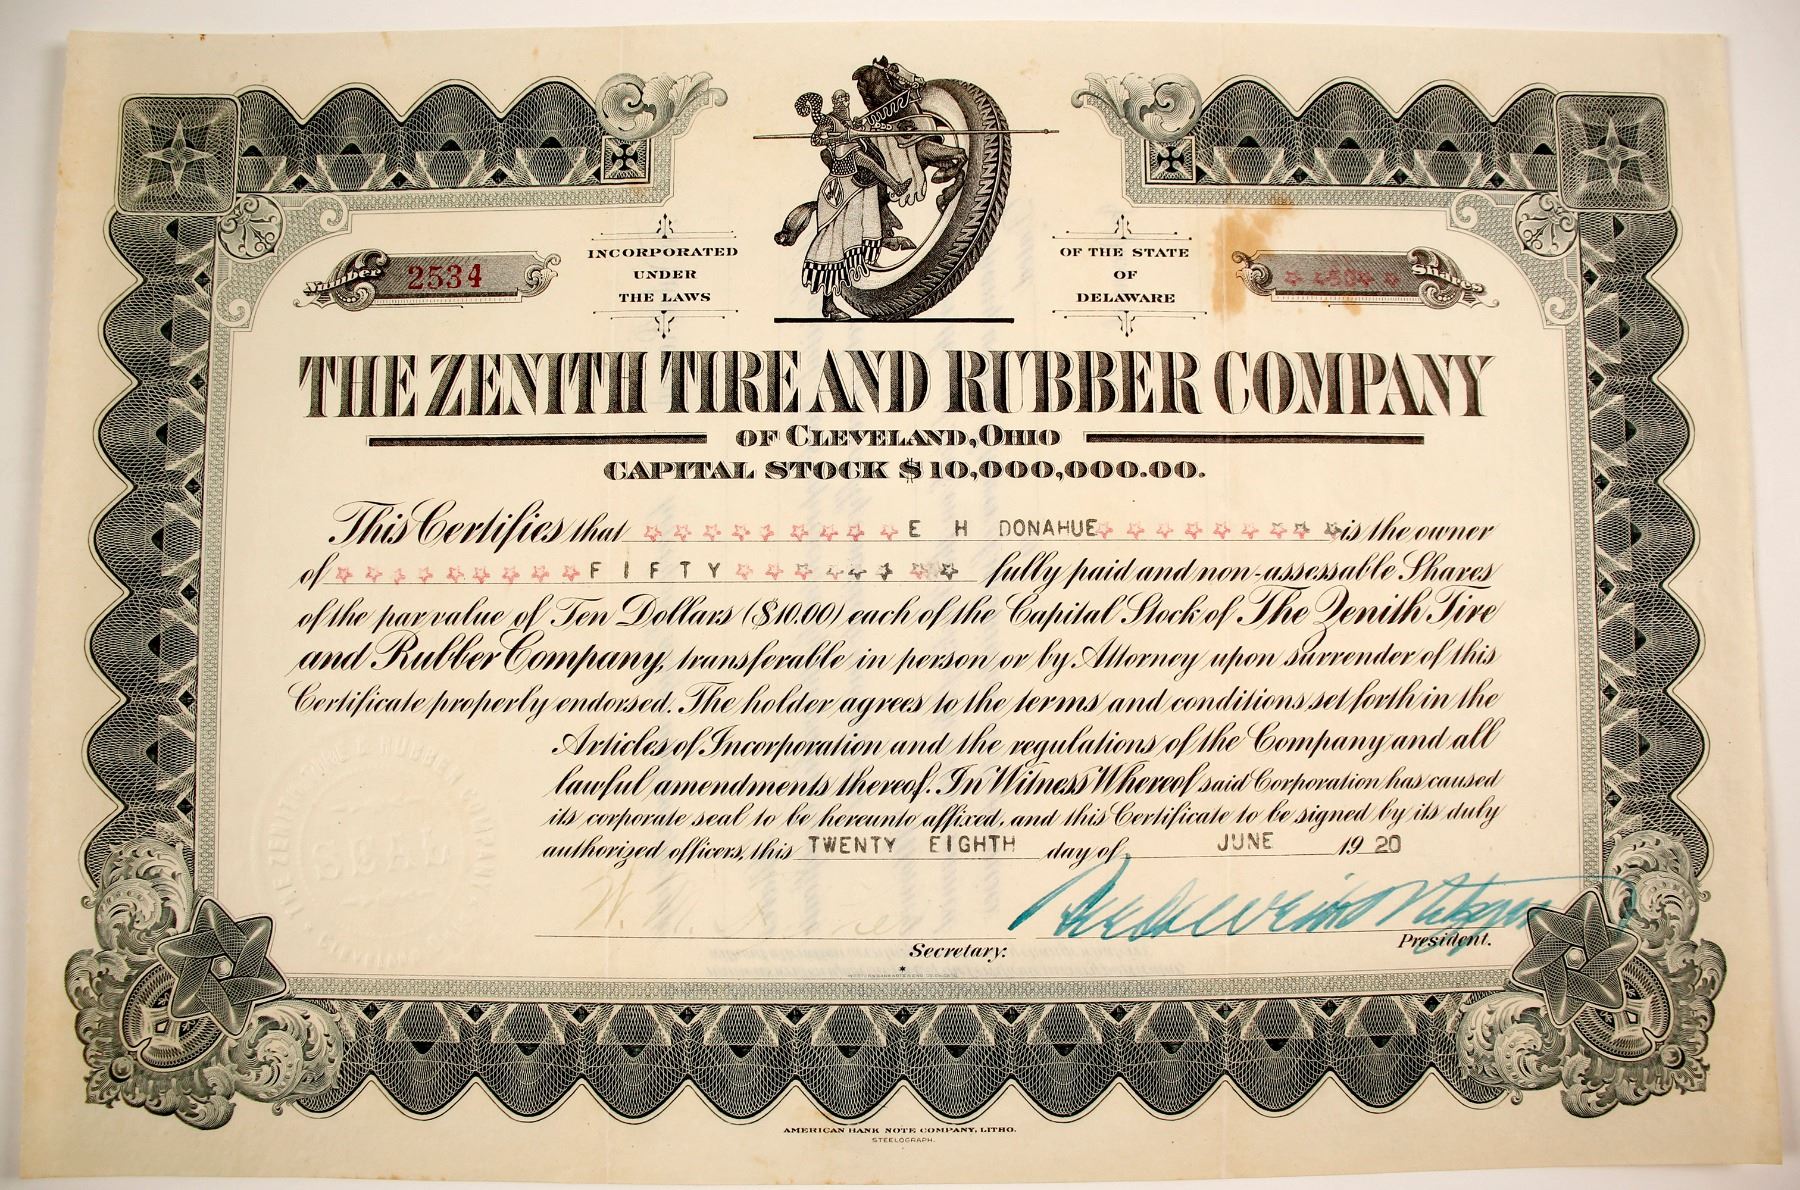 INCORPORATED
UNDER
THE LAWS
OF THE STATE
OF
DELAWARE
Number 2534
50 Shares
THE ZENITH TIRE AND RUBBER COMPANY
OF CLEVELAND, OHIO
CAPITAL STOCK $10,000,000.00.
This Certifies that E H DONAHUE is the owner
of FIFTY fully paid and non-assessable Shares
of the par value of Ten Dollars ($10.00) each of the Capital Stock of The Zenith Tire
and Rubber Company, transferable in person or by Attorney upon surrender of this
Certificate properly endorsed. The holder agrees to the terms and conditions set forth in the
Articles of Incorporation and the regulations of the Company and all
lawful amendments thereof. In Witness Whereof said Corporation has caused
its corporate seal to be hereunto affixed, and this Certificate to be signed by its duly
authorized officers, this TWENTY EIGHTH day of JUNE 1920
THE ZENITH TIRE & RUBBER COMPANY
SEAL
CLEVELAND
Secretary:
President.
AMERICAN BANK NOTE COMPANY, LITHO.
STEELOGRAPH.